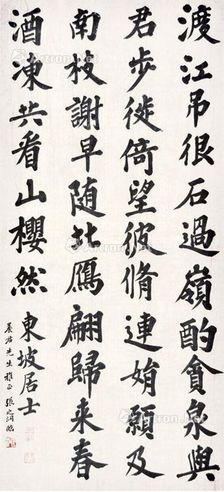 渡江吊很石過嶺酌貪泉與
君步徙倚望彼脩連娟願及
南枝謝早随北鴈翩歸来春
酒凍共看山櫻然
東坡居士
先生雅正 張之洞